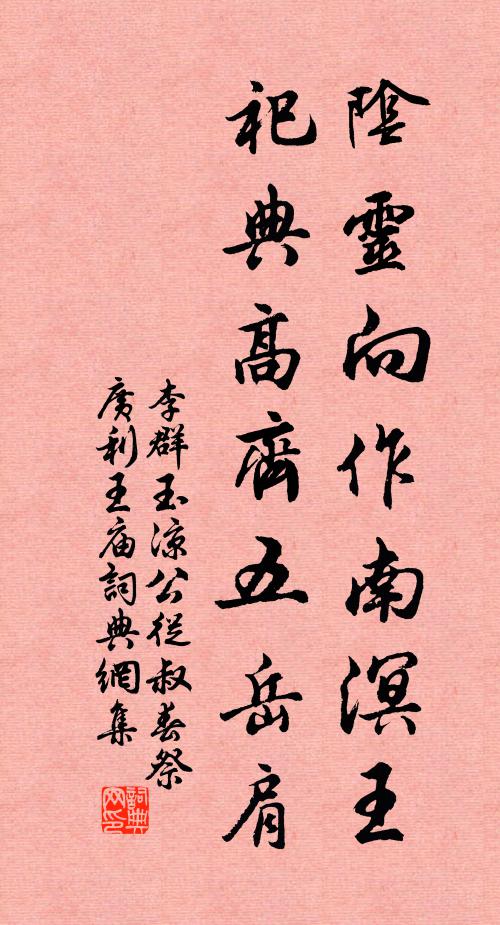 陰靈向作南溟王
祀典高齊五岳肩
李群玉涼公從叔春祭
廣利王庙詞典網集
詞典网印